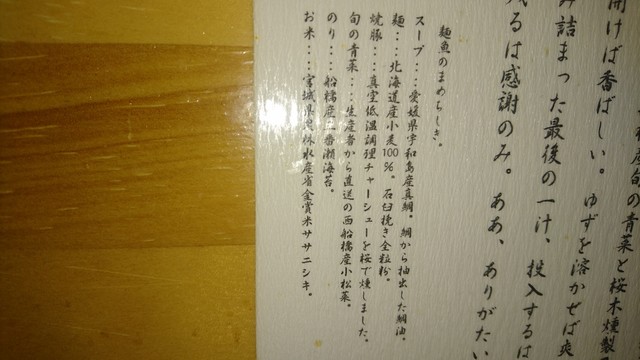 開けば香ばしい。ゆずを溶かせば爽
み詰まった最後の一汁、投入するは
残るは感謝のみ。ああ、ありがたい
麺魚のまめちしき。
スープ：：愛媛県宇和島産真鯛。鯛から抽出した鯛油。
麺：：北海道産小麦100%。石臼挽き全粒粉。
焼豚：：真空低温調理チャーシューを桜で燻しました。
旬の青菜：：生産者から直送の西船橋産小松菜。
のり：：船橋産一番瀬海苔。
お米：：宮城県農林水産省金賞米ササニシキ。